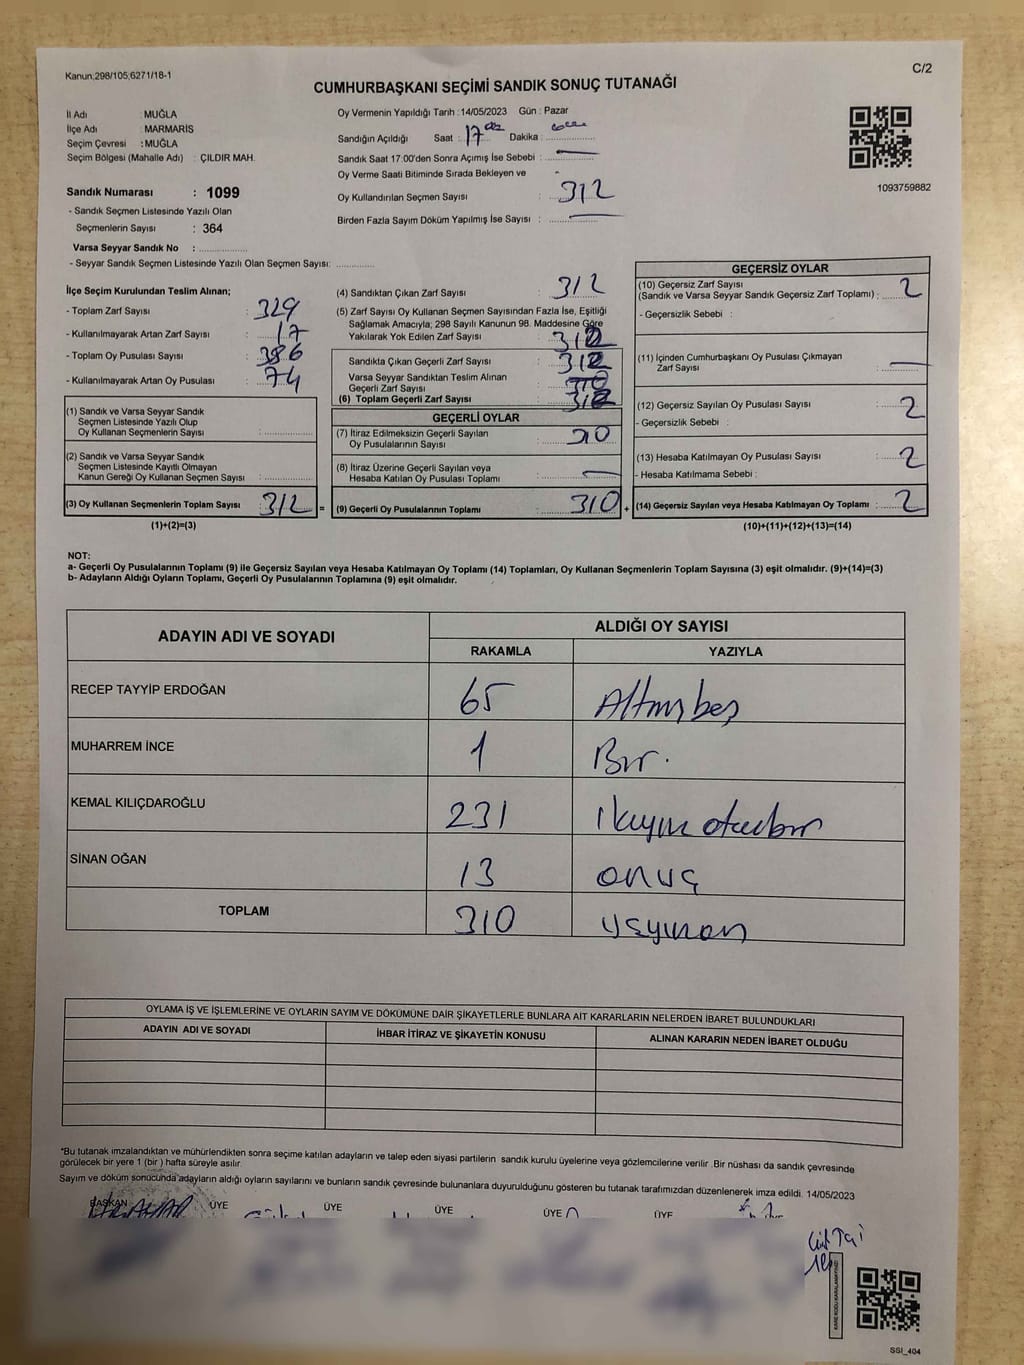 Kanun;298/105,6271/18-1
C/2
CUMHURBAŞKANI SEÇİMİ SANDIK SONUÇ TUTANAĞI
İl Adı : MUĞLA
İlçe Adı : MARMARİS
Seçim Çevresi : MUĞLA
Seçim Bölgesi (Mahalle Adı) : ÇILDIR MAH.
Sandık Numarası : 1099
- Sandık Seçmen Listesinde Yazılı Olan
Seçmenlerin Sayısı : 364
Varsa Seyyar Sandık No :
- Seyyar Sandık Seçmen Listesinde Yazılı Olan Seçmen Sayısı:
Oy Vermenin Yapıldığı Tarih : 14/05/2023 Gün : Pazar
Sandığın Açıldığı Saat : 17 Dakika :
Sandık Saat 17:00'den Sonra Açımış İse Sebebi :
Oy Verme Saati Bitiminde Sırada Bekleyen ve
Oy Kullandırılan Seçmen Sayısı : 312
Birden Fazla Sayım Döküm Yapılmış İse Sayısı :
1093759882
İlçe Seçim Kurulundan Teslim Alınan;
- Toplam Zarf Sayısı : 329
- Kullanılmayarak Artan Zarf Sayısı : 17
- Toplam Oy Pusulası Sayısı : 386
- Kullanılmayarak Artan Oy Pusulası : 74
(1) Sandık ve Varsa Seyyar Sandık
Seçmen Listesinde Yazılı Olup
Oy Kullanan Seçmenlerin Sayısı :
(2) Sandık ve Varsa Seyyar Sandık
Seçmen Listesinde Kayıtlı Olmayan
Kanun Gereği Oy Kullanan Seçmen Sayısı :
(3) Oy Kullanan Seçmenlerin Toplam Sayısı : 312 =
(1)+(2)=(3)
(4) Sandıktan Çıkan Zarf Sayısı : 312
(5) Zarf Sayısı Oy Kullanan Seçmen Sayısından Fazla İse, Eşitliği
Sağlamak Amacıyla; 298 Sayılı Kanunun 98. Maddesine Göre
Yakılarak Yok Edilen Zarf Sayısı : 312
Sandıkta Çıkan Geçerli Zarf Sayısı : 312
Varsa Seyyar Sandıktan Teslim Alınan
Geçerli Zarf Sayısı : 310
(6) Toplam Geçerli Zarf Sayısı : 312
GEÇERLİ OYLAR
(7) İtiraz Edilmeksizin Geçerli Sayılan
Oy Pusulalarının Sayısı : 310
(8) İtiraz Üzerine Geçerli Sayılan veya
Hesaba Katılan Oy Pusulası Toplamı :
(9) Geçerli Oy Pusulalarının Toplamı : 310 +
GEÇERSİZ OYLAR
(10) Geçersiz Zarf Sayısı
(Sandık ve Varsa Seyyar Sandık Geçersiz Zarf Toplamı) : 2
- Geçersizlik Sebebi :
(11) İçinden Cumhurbaşkanı Oy Pusulası Çıkmayan
Zarf Sayısı :
(12) Geçersiz Sayılan Oy Pusulası Sayısı : 2
- Geçersizlik Sebebi :
(13) Hesaba Katılmayan Oy Pusulası Sayısı : 2
- Hesaba Katılmama Sebebi :
(14) Geçersiz Sayılan veya Hesaba Katılmayan Oy Toplamı : 2
(10)+(11)+(12)+(13)=(14)
NOT:
a- Geçerli Oy Pusulalarının Toplamı (9) ile Geçersiz Sayılan veya Hesaba Katılmayan Oy Toplamı (14) Toplamları, Oy Kullanan Seçmenlerin Toplam Sayısına (3) eşit olmalıdır. (9)+(14)=(3)
b- Adayların Aldığı Oyların Toplamı, Geçerli Oy Pusulalarının Toplamına (9) eşit olmalıdır.
ADAYIN ADI VE SOYADI
ALDIĞI OY SAYISI
RAKAMLA YAZIYLA
RECEP TAYYİP ERDOĞAN 65 Altmışbeş
MUHARREM İNCE 1 Bir.
KEMAL KILIÇDAROĞLU 231 ikiyüz otuzbir
SİNAN OĞAN 13 onuç
TOPLAM 310 üçyüzon
OYLAMA İŞ VE İŞLEMLERİNE VE OYLARIN SAYIM VE DÖKÜMÜNE DAİR ŞİKAYETLERLE BUNLARA AİT KARARLARIN NELERDEN İBARET BULUNDUKLARI
ADAYIN ADI VE SOYADI İHBAR İTİRAZ VE ŞİKAYETİN KONUSU ALINAN KARARIN NEDEN İBARET OLDUĞU
*Bu tutanak imzalandıktan ve mühürlendikten sonra seçime katılan adayların ve talep eden siyasi partilerin sandık kurulu üyelerine veya gözlemcilerine verilir .Bir nüshası da sandık çevresinde
görülecek bir yere 1 (bir ) hafta süreyle asılır.
Sayım ve döküm sonucunda adayların aldığı oyların sayılarını ve bunların sandık çevresinde bulunanlara duyurulduğunu gösteren bu tutanak tarafımızdan düzenlenerek imza edildi. 14/05/2023
BAŞKAN ÜYE ÜYE ÜYE ÜYE ÜYE
KARE KODU KARALAMAYINIZ!
SSI_404